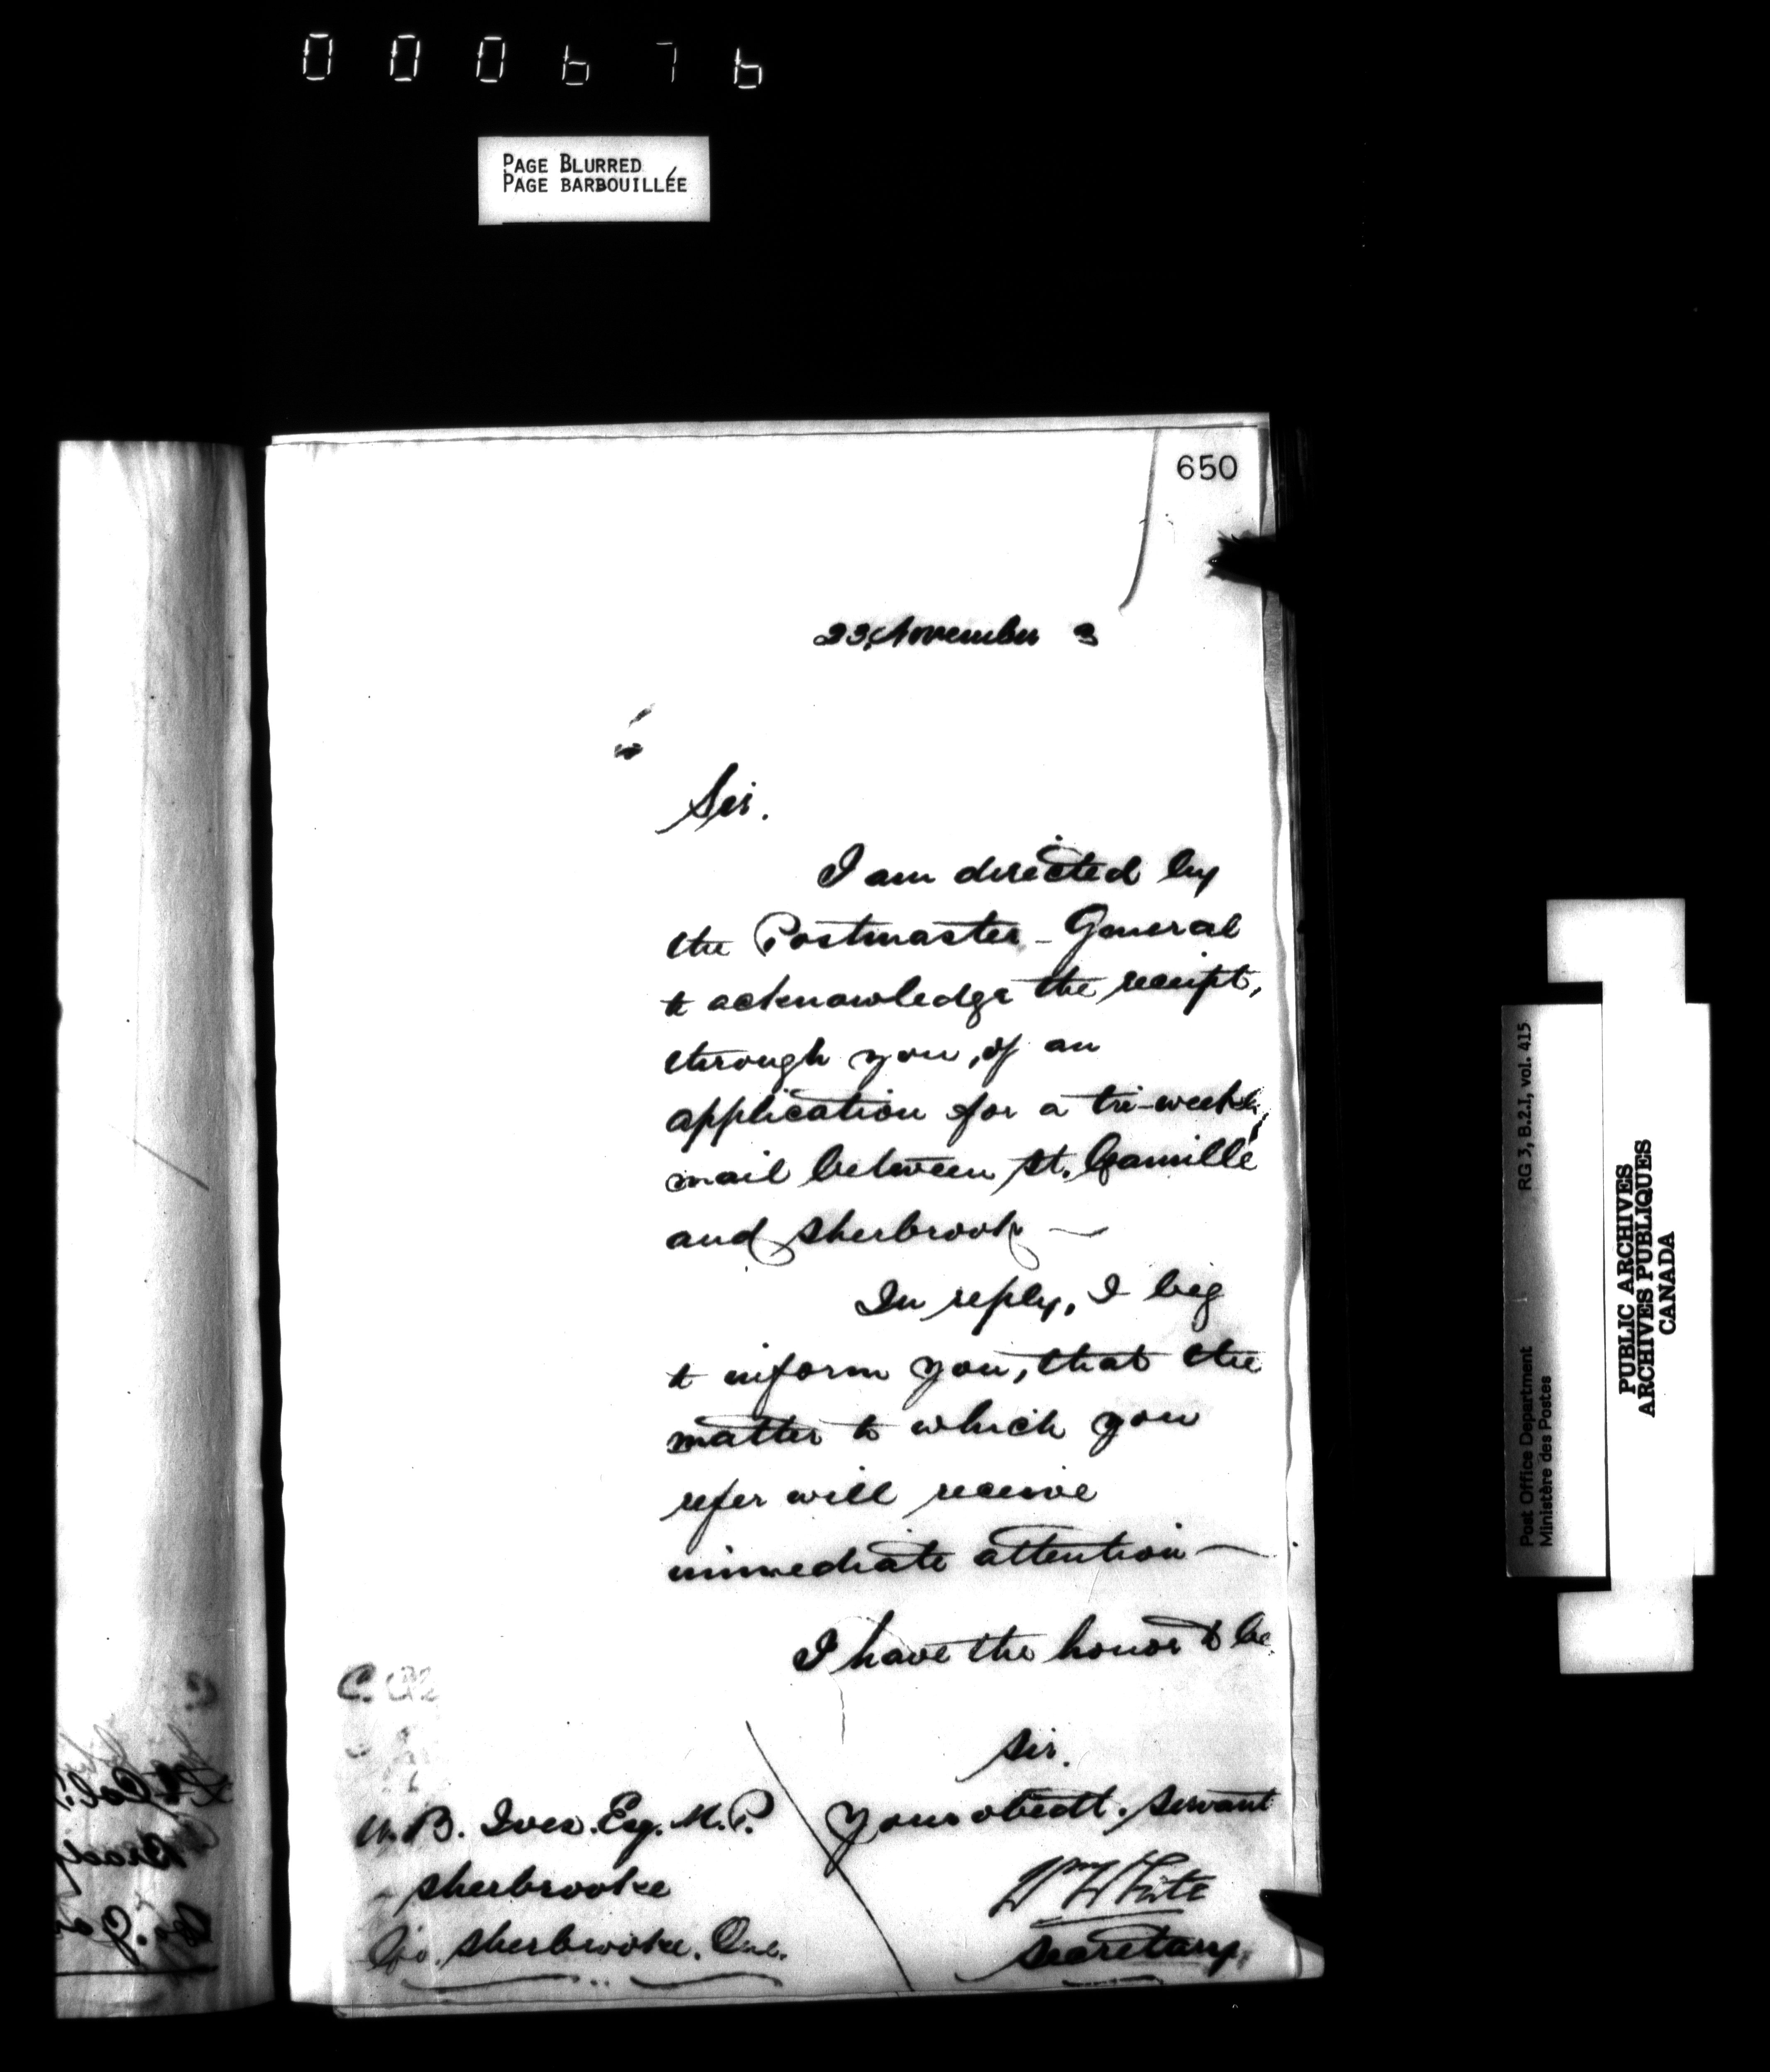 000676
PAGE BLURRED
PAGE BARBOUILLÉE
650
23, November 3
Sir.
I am directed by
the Postmaster-General
to acknowledge the receipt,
through you, of an
application for a tri-weekly
mail between St. Camille
and Sherbrook —
In reply, I beg
to inform you, that the
matter to which you
refer will receive
immediate attention —
I have the honor to be
Sir.
Your obedt. Servant
Wm White
Secretary.
W. B. Ives. Esq. M.P.
Sherbrooke
Co. Sherbrooke. Que.
RG 3, B.2.I, vol. 415
Post Office Department
Ministère des Postes
PUBLIC ARCHIVES
ARCHIVES PUBLIQUES
CANADA